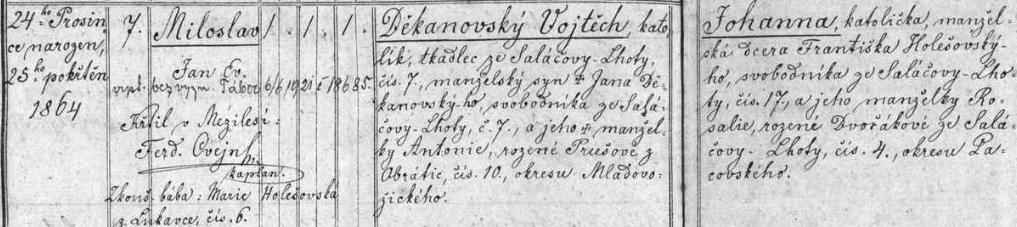 24ho Prosin
ce narozen,
25ho pokřtěn
1864
7.
Miloslav
1. 1. 1.
Jan Ev.
Křtil v Mezilesí:
Ferd. Cvejn
kaplan.
Zkouš. bába: Marie Holešovska
z Lukavce, čís. 6.
Děkanovský Vojtěch, kato
lik, tkadlec ze Saláčovy-Lhoty,
čís. 7., manželský syn † Jana Dě-
kanovsky-ho, svobodníka ze Salá-
čovy-Lhoty, č. 7., a jeho † manžel-
ky Antonie, rozené Prušove z
Obratic, čís. 10., okresu Mladovo-
žického.
Johanna, katolička, manžel-
ská dcera Františka Holešovský-
ho, svobodníka ze Saláčovy-Lho-
ty, čís. 17., a jeho manželky Ro-
salie, rozené Dvořákové ze Salá-
čovy-Lhoty, čís. 4., okresu Pa-
covského.